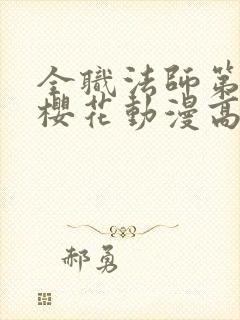 全職法師第
櫻花動漫高
郝勇